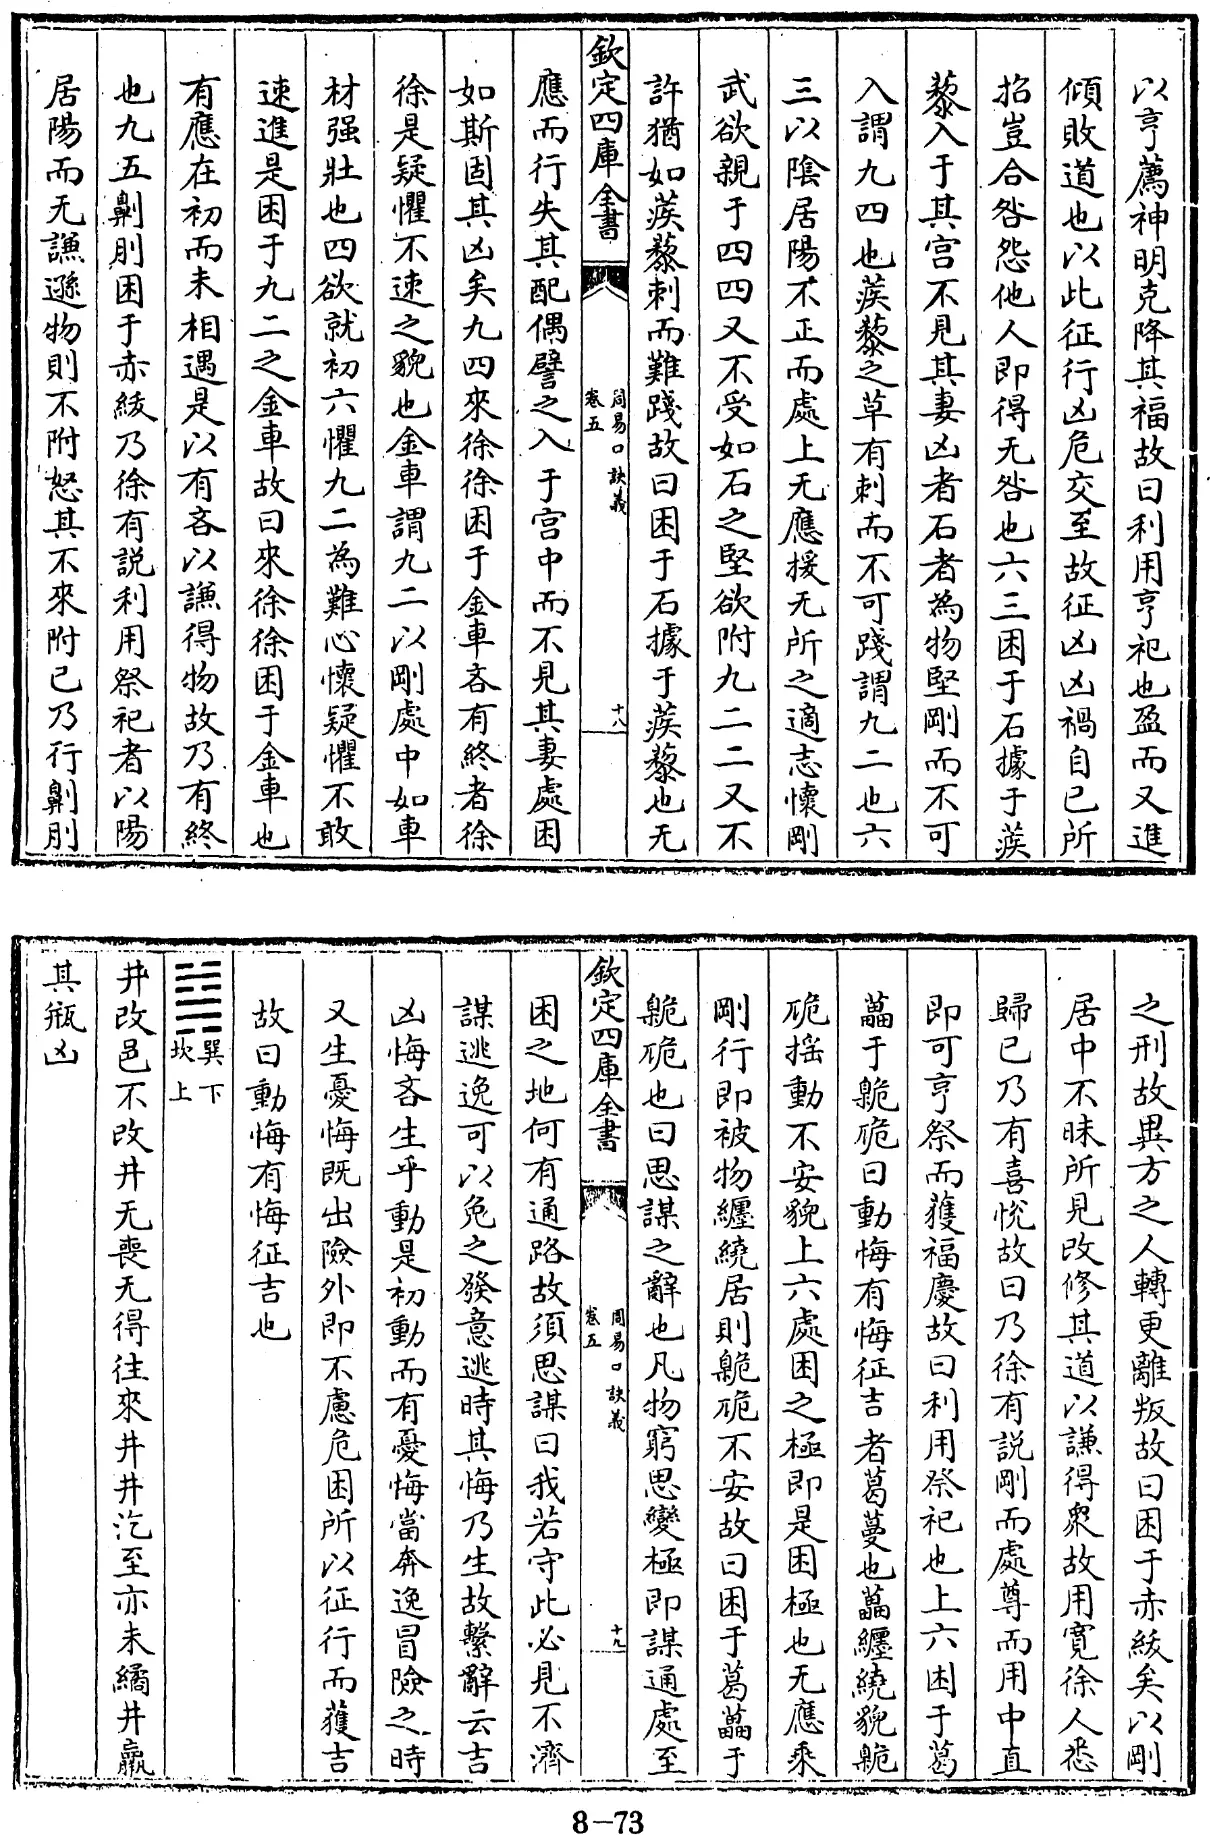 以亨薦神明克降其福故曰利用亨祀也盈而又進
傾敗道也以此征行凶危交至故征凶凶禍自已所
招豈合咎怨他人即得无咎也六三困于石據于蒺
藜入于其宫不見其妻凶者石者為物堅剛而不可
入謂九四也蒺藜之草有刺而不可踐謂九二也六
三以陰居陽不正而處上无應援无所之適志懷剛
武欲親于四四又不受如石之堅欲附九二二又不
許猶如蒺藜刺而難踐故曰困于石據于蒺藜也无
欽定四庫全書
周易口訣義
卷五
十八
應而行失其配偶譬之入于宫中而不見其妻處困
如斯固其凶矣九四來徐徐困于金車吝有終者徐
徐是疑懼不速之貌也金車謂九二以剛處中如車
材强壯也四欲就初六懼九二為難心懷疑懼不敢
速進是困于九二之金車故曰來徐徐困于金車也
有應在初而未相遇是以有吝以謙得物故乃有終
也九五劓刖困于赤紱乃徐有説利用祭祀者以陽
居陽而无謙遜物則不附怒其不來附已乃行劓刖
之刑故異方之人轉更離叛故曰困于赤紱矣以剛
居中不昧所見改修其道以謙得衆故用寛徐人悉
歸已乃有喜悦故曰乃徐有説剛而處尊而用中直
即可亨祭而獲福慶故曰利用祭祀也上六困于葛
藟于臲卼曰動悔有悔征吉者葛蔓也藟纒繞貌臲
卼揺動不安貌上六處困之極即是困極也无應乘
剛行即被物纒繞居則臲卼不安故曰困于葛藟于
臲卼也曰思謀之辭也凡物窮思變極即謀通處至
欽定四庫全書
周易口訣義
卷五
十九
困之地何有通路故須思謀曰我若守此必見不濟
謀逃逸可以免之發意逃時其悔乃生故繫辭云吉
凶悔吝生乎動是初動而有憂悔當奔逸冒險之時
又生憂悔既出險外即不慮危困所以征行而獲吉
故曰動悔有悔征吉也
䷯巽下
坎上
井改邑不改井无喪无得往來井井汔至亦未繘井羸
其瓶凶
8—73